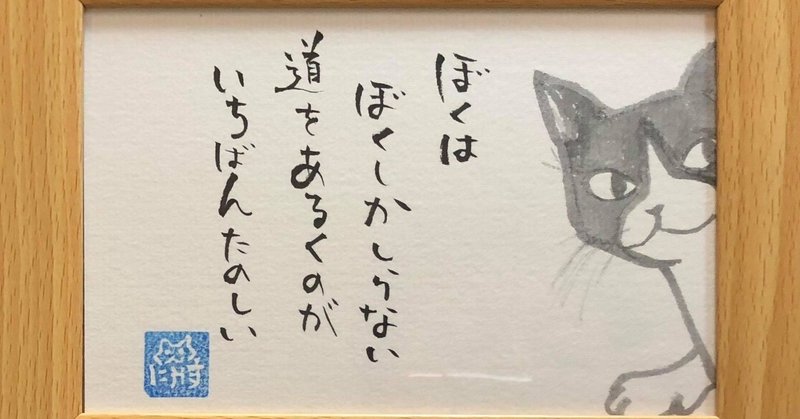 ぼくは
ぼくしかしらない
道をあるくのが
いちばんたのしい